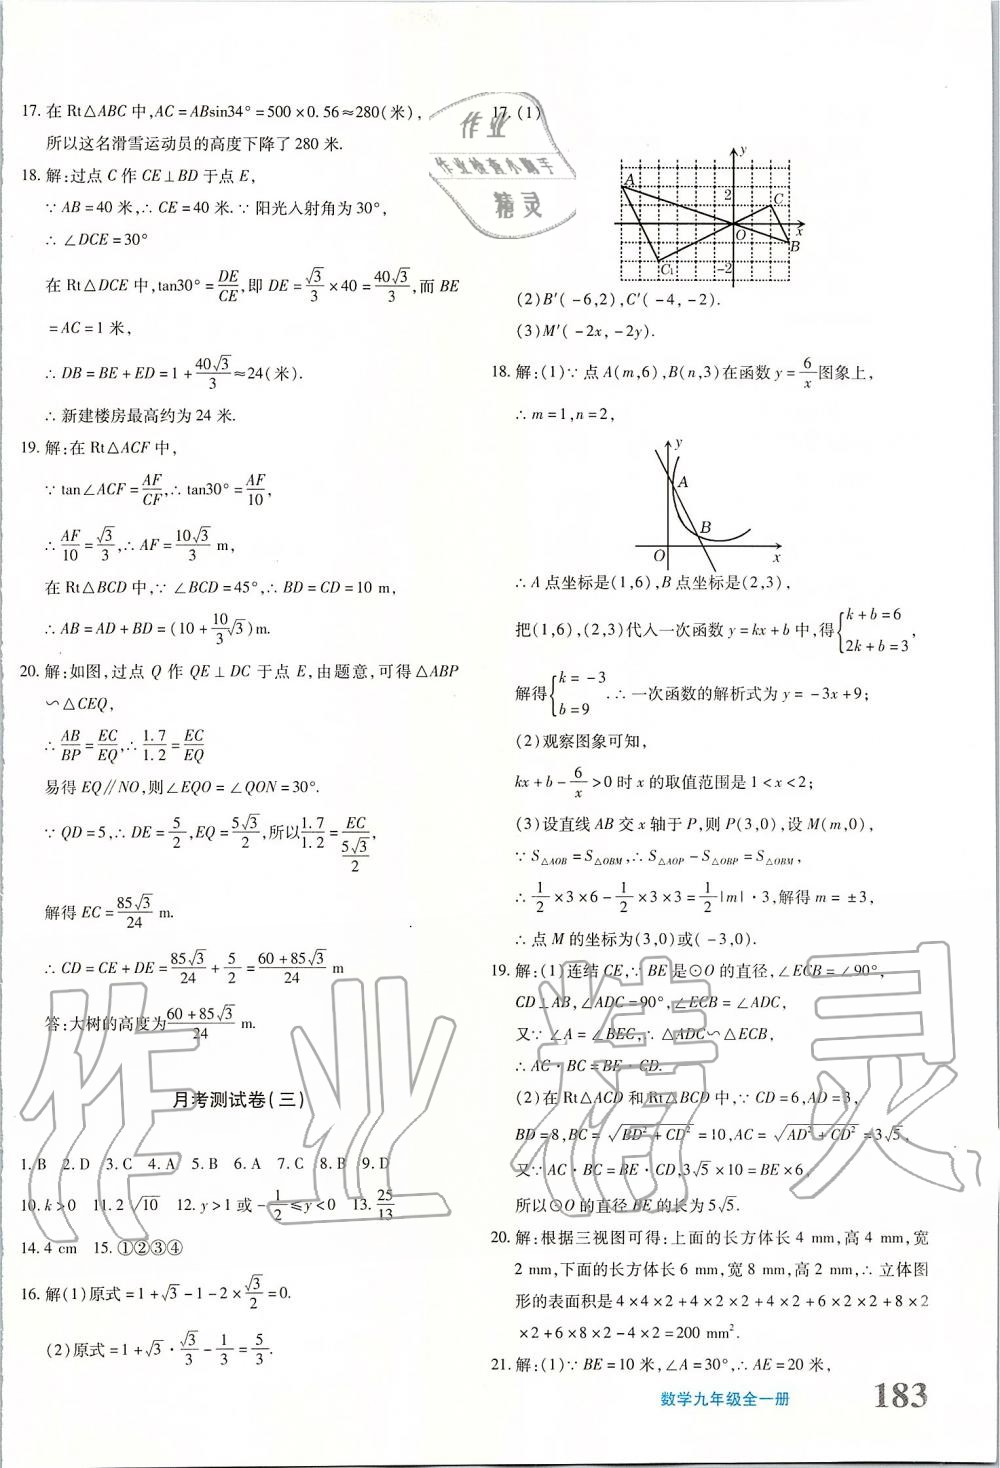 17. 在 Rt△ABC 中,AC=ABsin34°=500×0.56≈280(米),
所以这名滑雪运动员的高度下降了 280 米.
18. 解:过点 C 作 CE⊥BD 于点 E,
∵AB=40 米,∴CE=40 米.∵阳光入射角为 30°,
∴∠DCE=30°
在 Rt△DCE 中,tan30°=DE/CE,即 DE=√3/3×40=40√3/3,而 BE
=AC=1 米,
∴DB=BE+ED=1+40√3/3≈24(米).
∴新建楼房最高约为 24 米.
19. 解:在 Rt△ACF 中,
∵tan∠ACF=AF/CF,∴tan30°=AF/10,
∴AF/10=√3/3,∴AF=10√3/3 m,
在 Rt△BCD 中,∵∠BCD=45°,∴BD=CD=10 m,
∴AB=AD+BD=(10+10/3√3)m.
20. 解:如图,过点 Q 作 QE⊥DC 于点 E,由题意,可得△ABP
∽△CEQ,
∴AB/BP=EC/EQ,∴1.7/1.2=EC/EQ
易得 EQ∥NO,则∠EQO=∠QON=30°.
∵QD=5,∴DE=5/2,EQ=5√3/2,所以1.7/1.2=EC/(5√3/2),
解得 EC=85√3/24 m.
∴CD=CE+DE=85√3/24+5/2=(60+85√3)/24 m
答:大树的高度为(60+85√3)/24 m.
月考测试卷(三)
1. B 2. D 3. C 4. A 5. B 6. A 7. C 8. B 9. D
10. k>0 11. 2√10 12. y>1 或 -1/2≤y<0 13. 25/13
14. 4 cm 15. ①②③④
16. 解(1)原式=1+√3-1-2×√3/2=0.
(2)原式=1+√3·√3/3-1/3=5/3.
作业
作业检查小助手
精灵
17. (1)
y
A
2
C
O
x
B
C₁
-2
(2)B′(-6,2),C′(-4,-2).
(3)M′(-2x,-2y).
18. 解:(1)∵点 A(m,6),B(n,3)在函数 y=6/x图象上,
∴m=1,n=2,
y
A
B
O
x
∴A 点坐标是(1,6),B 点坐标是(2,3),
把(1,6),(2,3)代入一次函数 y=kx+b 中,得{k+b=6
2k+b=3,
解得{k=-3
b=9 .∴一次函数的解析式为 y=-3x+9;
(2)观察图象可知,
kx+b-6/x>0 时 x 的取值范围是 1<x<2;
(3)设直线 AB 交 x 轴于 P,则 P(3,0),设 M(m,0),
∵S△AOB=S△OBM,∴S△AOP-S△OBP=S△OBM,
∴1/2×3×6-1/2×3×3=1/2|m|·3,解得 m=±3,
∴点 M 的坐标为(3,0)或(-3,0).
19. 解:(1)连结 CE,∵BE 是⊙O 的直径,∠ECB=∠90°,
CD⊥AB,∠ADC=90°,∠ECB=∠ADC,
又∵∠A=∠BEC,∴△ADC∽△ECB,
∴AC·BC=BE·CD.
(2)在 Rt△ACD 和 Rt△BCD 中,∵CD=6,AD=3,
BD=8,BC=√(BD²+CD²)=10,AC=√(AD²+CD²)=3√5,
又∵AC·BC=BE·CD,3√5×10=BE×6,
所以⊙O 的直径 BE 的长为 5√5.
20. 解:根据三视图可得:上面的长方体长 4 mm,高 4 mm,宽
2 mm,下面的长方体长 6 mm,宽 8 mm,高 2 mm,∴立体图
形的表面积是 4×4×2+4×2×2+4×2+6×2×2+8×2
×2+6×8×2-4×2=200 mm².
21. 解:(1)∵BE=10 米,∠A=30°,∴AE=20 米,
作业精灵
数学九年级全一册
183